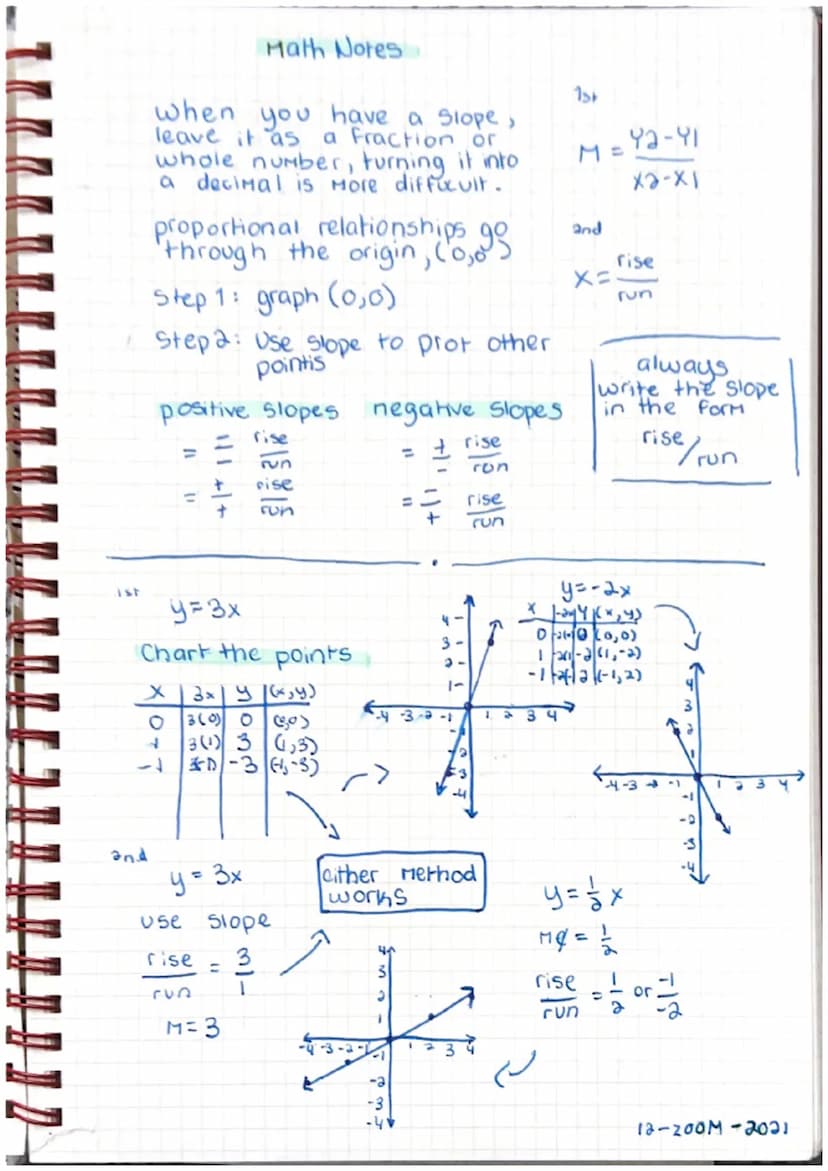 Math Notes
when you have a slope,
leave it as a fraction or
whole number, turning it into
a decimal is more difficult.
proportional relationships go
through the origin, (0,0)
Step 1: graph (0,0)
Step 2: Use slope to plot other
points
1st
M = y2-y1
x2-x1
and
X = rise
run
always
write the slope
in the form
rise
/run
positive slopes
= - rise
- run
= + rise
+ run
negative slopes
= + rise
- run
= - rise
+ run
1st
y=3x
Chart the points
x 3x y (x,y)
0 3(0) 0 (0,0)
1 3(1) 3 (1,3)
-1 -3 (-1,-3)
4
3
2
1
-4 -3 -2 -1 1 2 3 4
-2
-3
-4
y=-2x
x -2x y (x,y)
0 0 (0,0)
1 -2 (1,-2)
-1 2 (-1,2)
4
3
2
1
-4 -3 -2 -1 1 2 3 4
-1
-2
-3
-4
2nd
y = 3x
use slope
rise = 3
run 1
M=3
either method
works
4
3
2
1
-4 -3 -2 -1 1 2 3 4
-1
-2
-3
-4
y = 1/2 x
M = 1/2
rise = 1 or -1
run 2 -2
12-ZOOM-2021